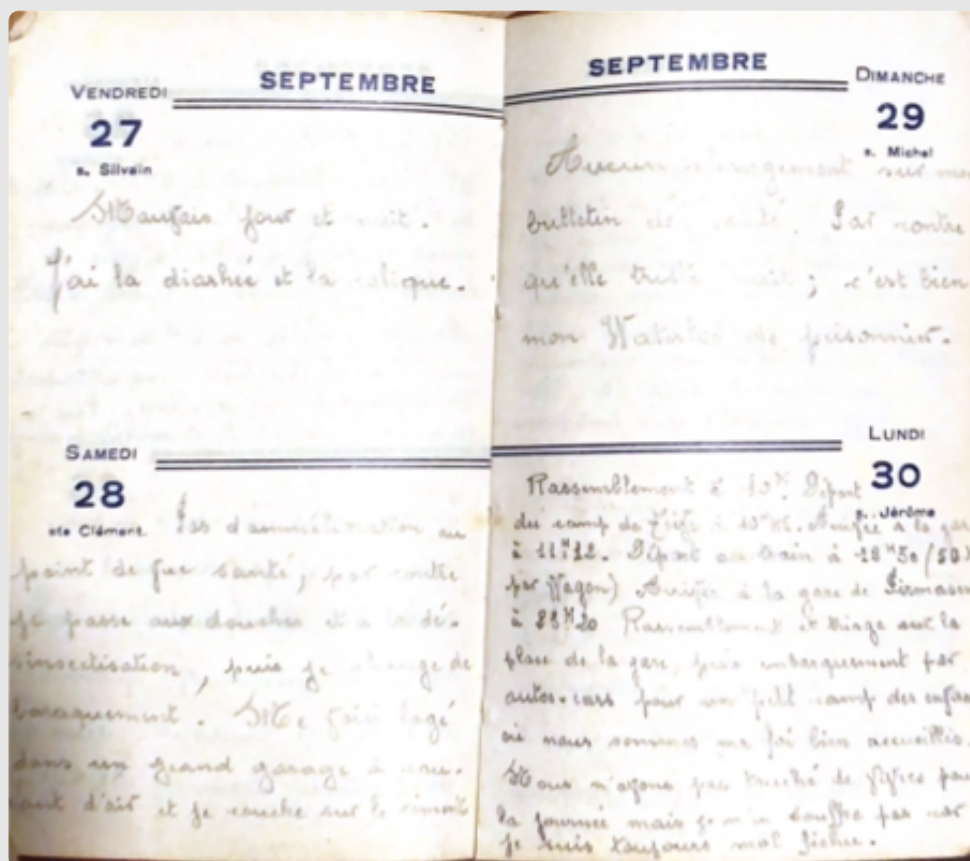 SEPTEMBRE
VENDREDI
27
s. Silvain
Mauvais jour et nuit.
J'ai la diarhée et la colique.
SAMEDI
28
ste Clément.
Pas d'ammélioration au
point de vue santé, par contre
je passe aux douches et à la dé-
sinsectisation, puis je change de
baraquement. Me voici logé
dans un grand garage à cou-
rant d'air et je couche sur le ciment
SEPTEMBRE
DIMANCHE
29
s. Michel
Aucun changement sur mon
bulletin de santé. Par contre
qu'elle nuit ; c'est bien
mon de prisonnier.
LUNDI
30
s. Jérôme
Rassemblement à Départ
du camp de à Arrivée à la gare
à 11H12. Départ au train à 18H30 (50
par Wagon) Arrivée à la gare de
à Rassemblement et triage sur la
place de la gare, puis embarquement par
autos-cars pour un petit camp des
où nous sommes ma foi bien accueillis.
Nous n'avons pas touché de vivres pour
la journée mais je n'en souffre pas car
je suis toujours mal fichu.